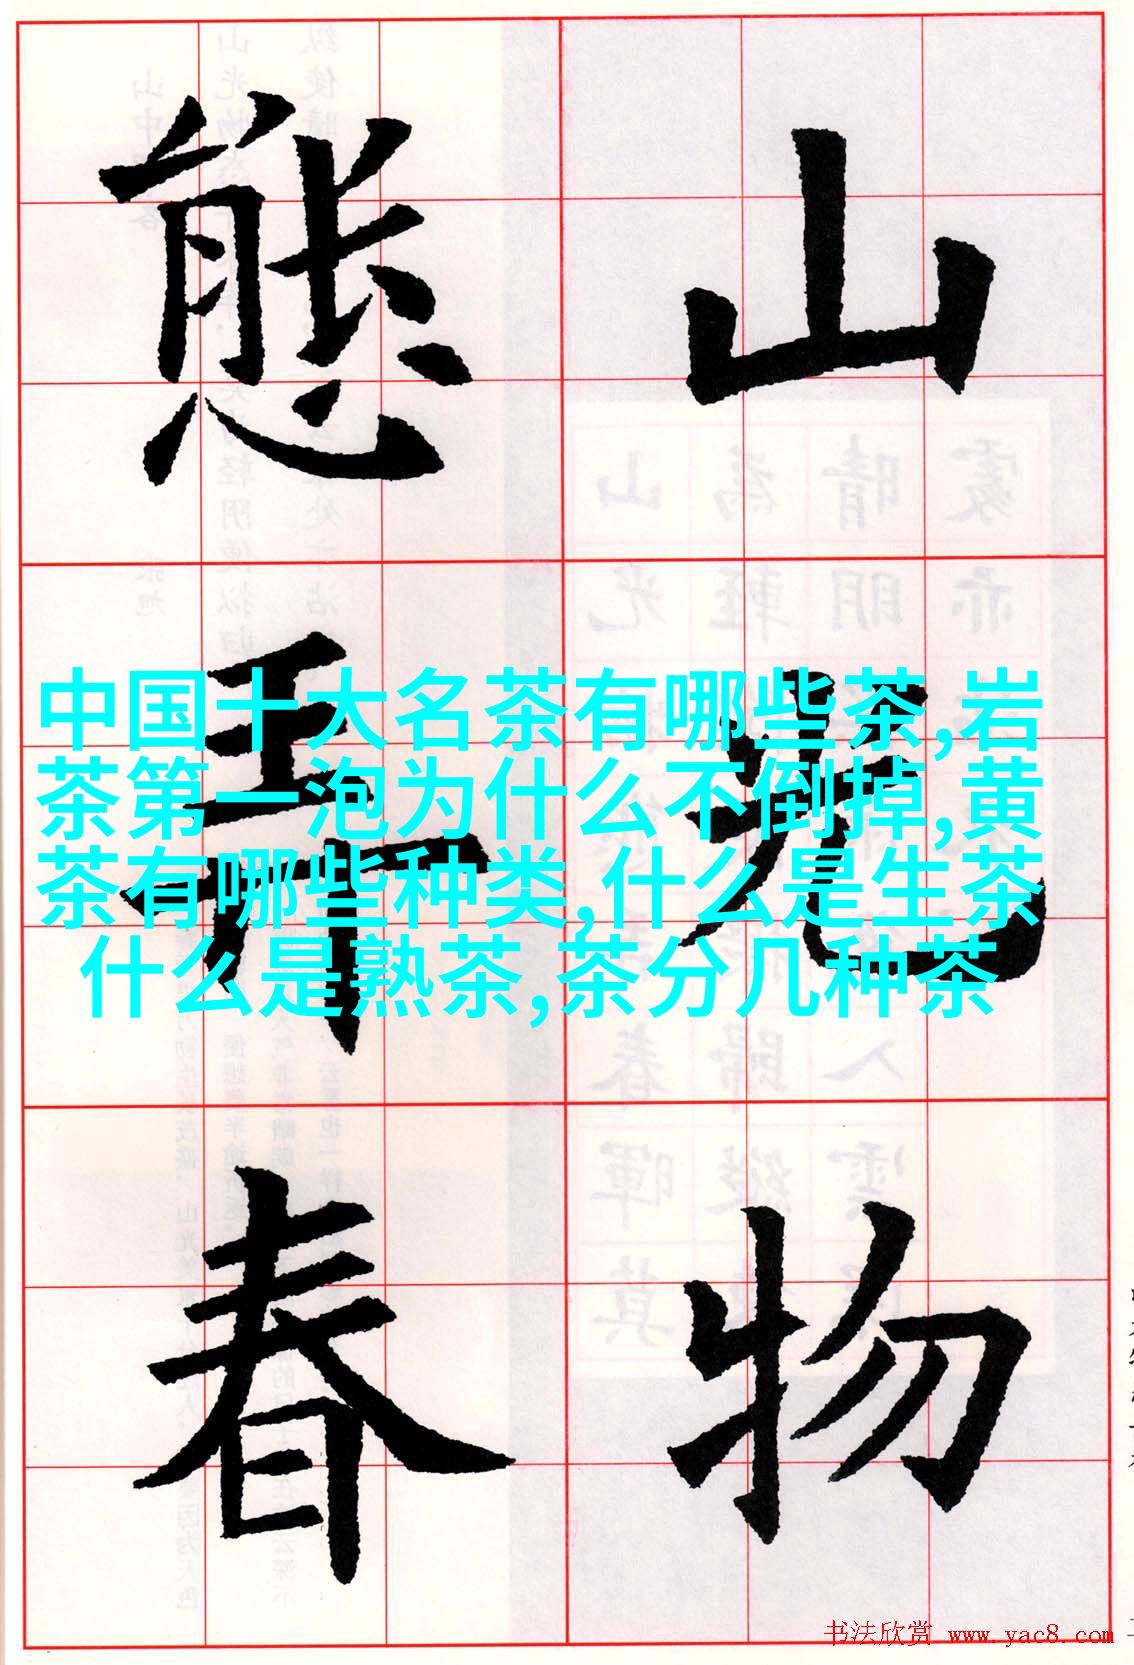 山光物
態弄春
中国十大名茶有哪些茶,岩
茶第一泡为什么不倒掉,黄
茶有哪些种类,什么是生茶
什么是熟茶,茶分几种茶
书法欣赏 www.yac8.com